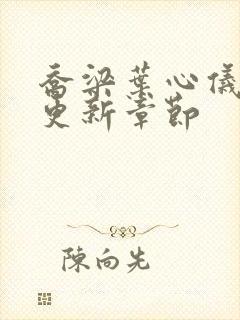 乔梁叶心仪
更新章节
陈向先